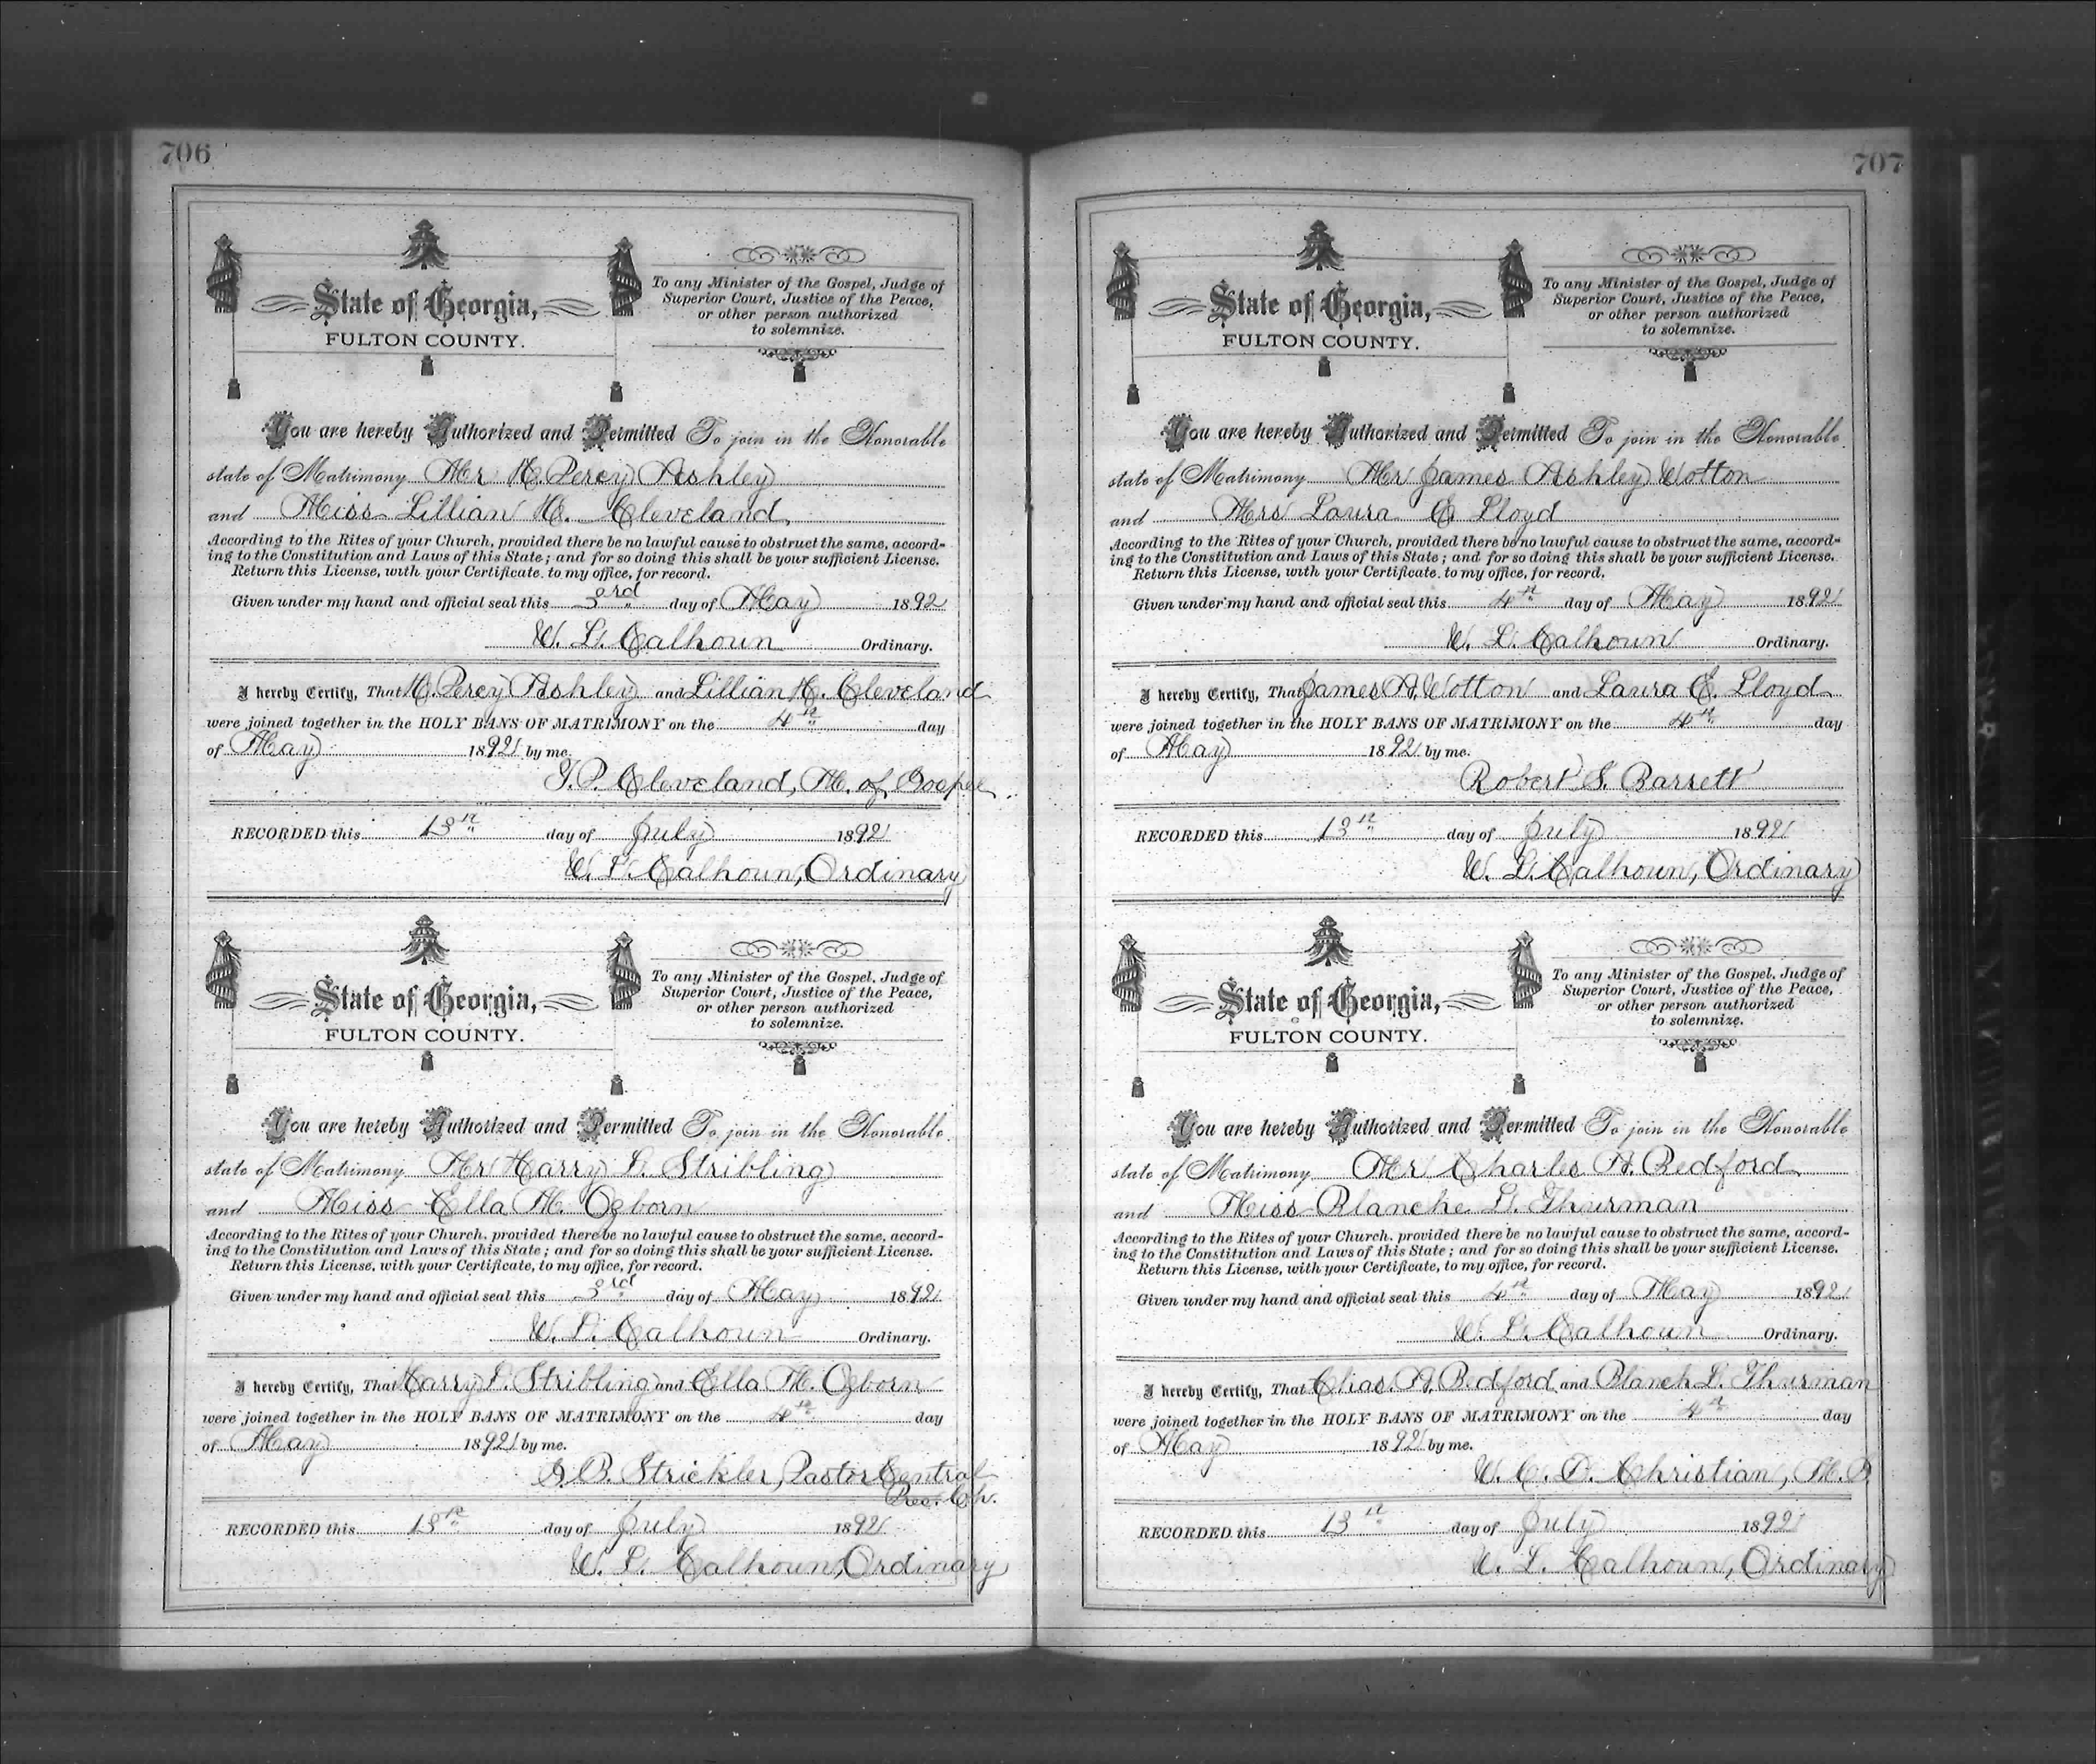 706
State of Georgia,
FULTON COUNTY.
To any Minister of the Gospel, Judge of
Superior Court, Justice of the Peace,
or other person authorized
to solemnize.
You are hereby Authorized and Permitted To join in the Honorable
state of Matrimony Mr H. Percy Ashley
and Miss Lillian H. Cleveland,
According to the Rites of your Church, provided there be no lawful cause to obstruct the same, accord-
ing to the Constitution and Laws of this State; and for so doing this shall be your sufficient License.
Return this License, with your Certificate, to my office, for record.
Given under my hand and official seal this 3rd day of May 1892
W. L. Calhoun Ordinary.
I hereby Certify, That H. Percy Ashley and Lillian H. Cleveland
were joined together in the HOLY BANS OF MATRIMONY on the 4th day
of May 1892 by me.
J. P. Cleveland, M. of Gospel
RECORDED this 13th day of July 1892
W. L. Calhoun, Ordinary
State of Georgia,
FULTON COUNTY.
To any Minister of the Gospel, Judge of
Superior Court, Justice of the Peace,
or other person authorized
to solemnize.
You are hereby Authorized and Permitted To join in the Honorable
state of Matrimony Mr Harry L. Stribling
and Miss Ella M. Ozborn
According to the Rites of your Church, provided there be no lawful cause to obstruct the same, accord-
ing to the Constitution and Laws of this State; and for so doing this shall be your sufficient License.
Return this License, with your Certificate, to my office, for record.
Given under my hand and official seal this 3rd day of May 1892
W. L. Calhoun Ordinary.
I hereby Certify, That Harry L. Stribling and Ella M. Ozborn
were joined together in the HOLY BANS OF MATRIMONY on the 4th day
of May 1892 by me.
G. B. Strickler, Pastor Central
Pres. Ch.
RECORDED this 13th day of July 1892
W. L. Calhoun, Ordinary
707
State of Georgia,
FULTON COUNTY.
To any Minister of the Gospel, Judge of
Superior Court, Justice of the Peace,
or other person authorized
to solemnize.
You are hereby Authorized and Permitted To join in the Honorable
state of Matrimony Mr James Ashley Wotton
and Mrs Laura E. Lloyd
According to the Rites of your Church, provided there be no lawful cause to obstruct the same, accord-
ing to the Constitution and Laws of this State; and for so doing this shall be your sufficient License.
Return this License, with your Certificate, to my office, for record.
Given under my hand and official seal this 4th day of May 1892
W. L. Calhoun Ordinary.
I hereby Certify, That James A. Wotton and Laura E. Lloyd
were joined together in the HOLY BANS OF MATRIMONY on the 4th day
of May 1892 by me.
Robert S. Barrett
RECORDED this 13th day of July 1892
W. L. Calhoun, Ordinary
State of Georgia,
FULTON COUNTY.
To any Minister of the Gospel, Judge of
Superior Court, Justice of the Peace,
or other person authorized
to solemnize.
You are hereby Authorized and Permitted To join in the Honorable
state of Matrimony Mr Charles A. Redford
and Miss Blanche L. Thurman
According to the Rites of your Church, provided there be no lawful cause to obstruct the same, accord-
ing to the Constitution and Laws of this State; and for so doing this shall be your sufficient License.
Return this License, with your Certificate, to my office, for record.
Given under my hand and official seal this 4th day of May 1892
W. L. Calhoun Ordinary.
I hereby Certify, That Chas. A. Redford and Blanch L. Thurman
were joined together in the HOLY BANS OF MATRIMONY on the 4th day
of May 1892 by me.
W. C. D. Christian, M. G.
RECORDED this 13th day of July 1892
W. L. Calhoun, Ordinary